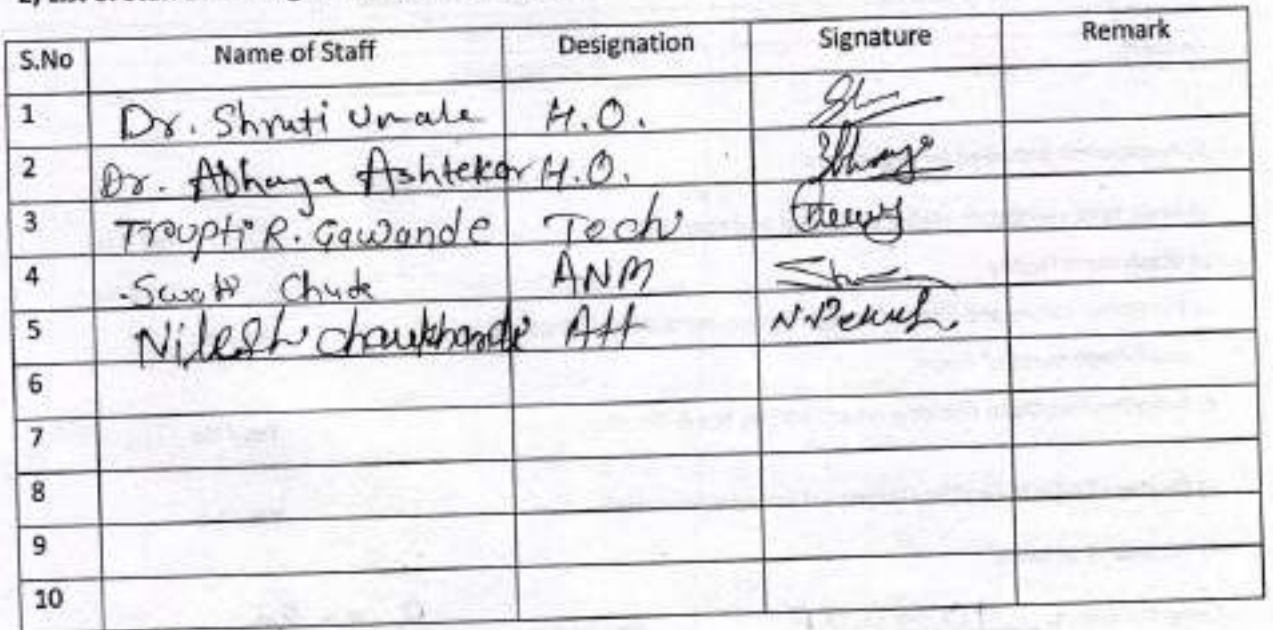 S.No Name of Staff Designation Signature Remark
1 Dr. Shruti Umale H.O.
2 Dr. Abhaya Ashtekar H.O.
3 Trupti R. Gawande Tech
4 Swati Chude ANM
5 Nilesh chaukhande Att
6
7
8
9
10